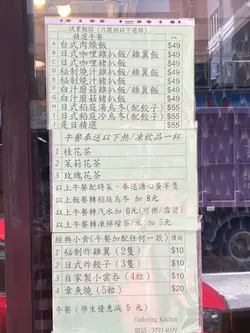 試業期間(只提供以下選擇)
精選午餐
A 台式肉燥飯 $49
B 日式咖哩雞扒飯/雞翼飯 $49
C 日式咖哩豬扒飯 $49
D 秘制燒汁雞扒飯/雞翼飯 $49
E 秘制燒汁豬扒飯 $49
F 白汁蘑菇雞扒飯 $49
G 白汁蘑菇豬扒飯 $49
H 日式稻庭湯烏冬(配餃子) $55
I 日式稻庭冷烏冬(配餃子) $55
J 是日精選 $55
午餐奉送以下熱/凍飲品一杯
1 桂花茶
2 茉莉花茶
3 玫瑰花茶
以上午餐配時菜,奉送溏心蛋半隻
以上飯餐轉稻庭烏冬 加8元
以上午餐轉汽水加6元(可樂/雪碧)
以上午餐轉凍檸檬茶/水 加5元
經典小食(午餐加配任何一款) 價錢
1 秘制炸雞翼(2隻) $10
2 日式炸餃子(3隻) $10
3 自家製小雲吞(4粒) $10
4 章魚燒(5粒) $20
午餐(學生優惠減 5 元)
Gathering Kitchen